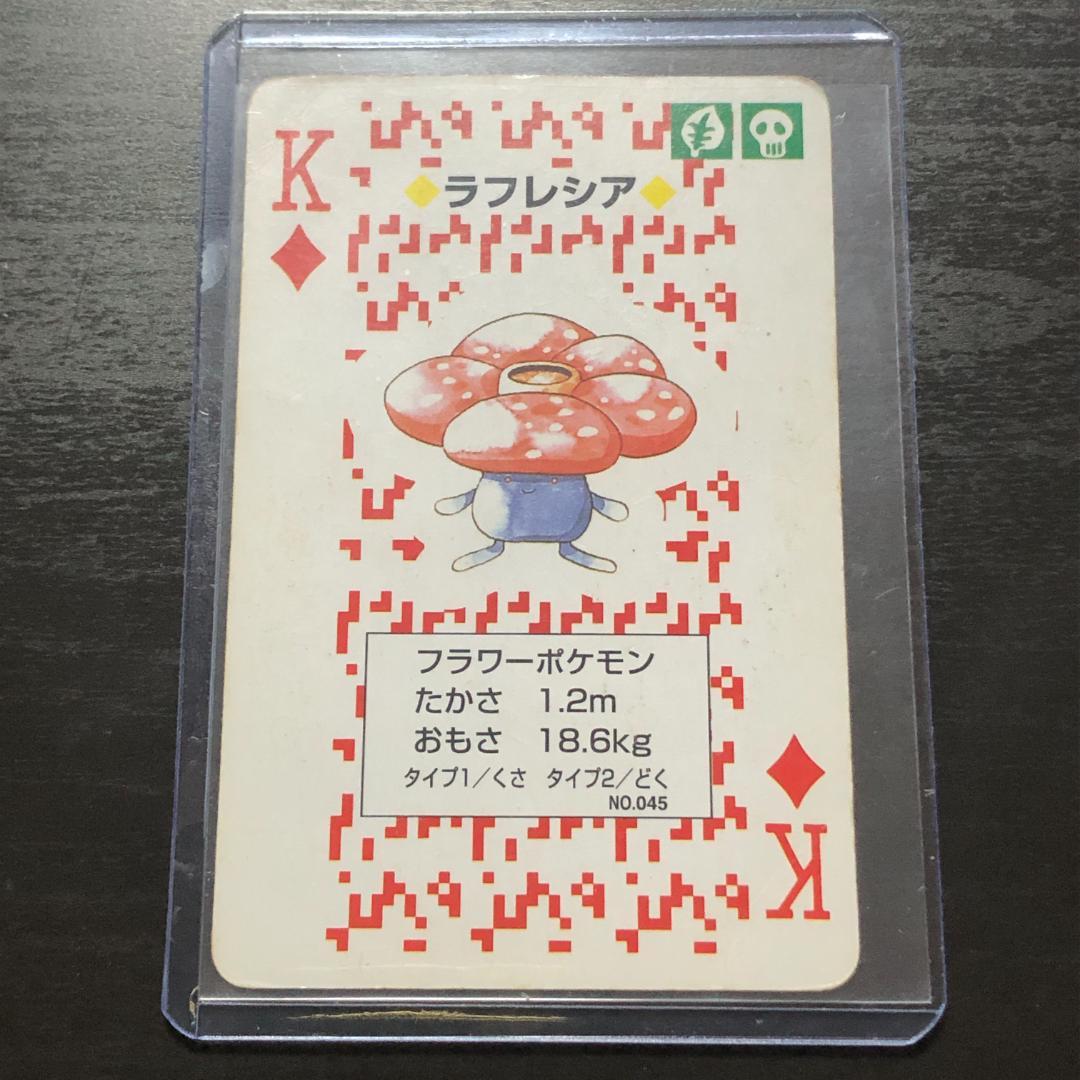 K
ラフレシア
フラワーポケモン
たかさ 1.2m
おもさ 18.6kg
タイプ1/くさ タイプ2/どく
NO.045
K